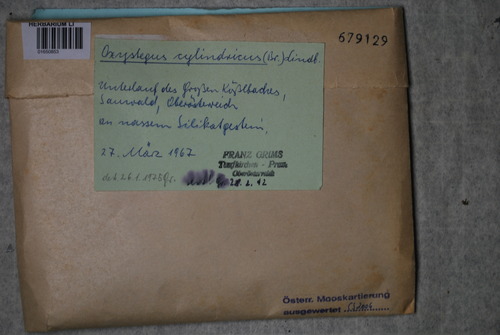 HERBARIUM LI
679129
Oxystegus cylindricus (Br.) Lindb.
Unterlauf des Großen Kößlbaches,
Sauwald, Oberösterreich
an nassem Silikatgestein,
27. März 1967
FRANZ GRIMS
Taufkirchen - Pram
Oberösterreich
Österr. Mooskartierung
ausgewertet